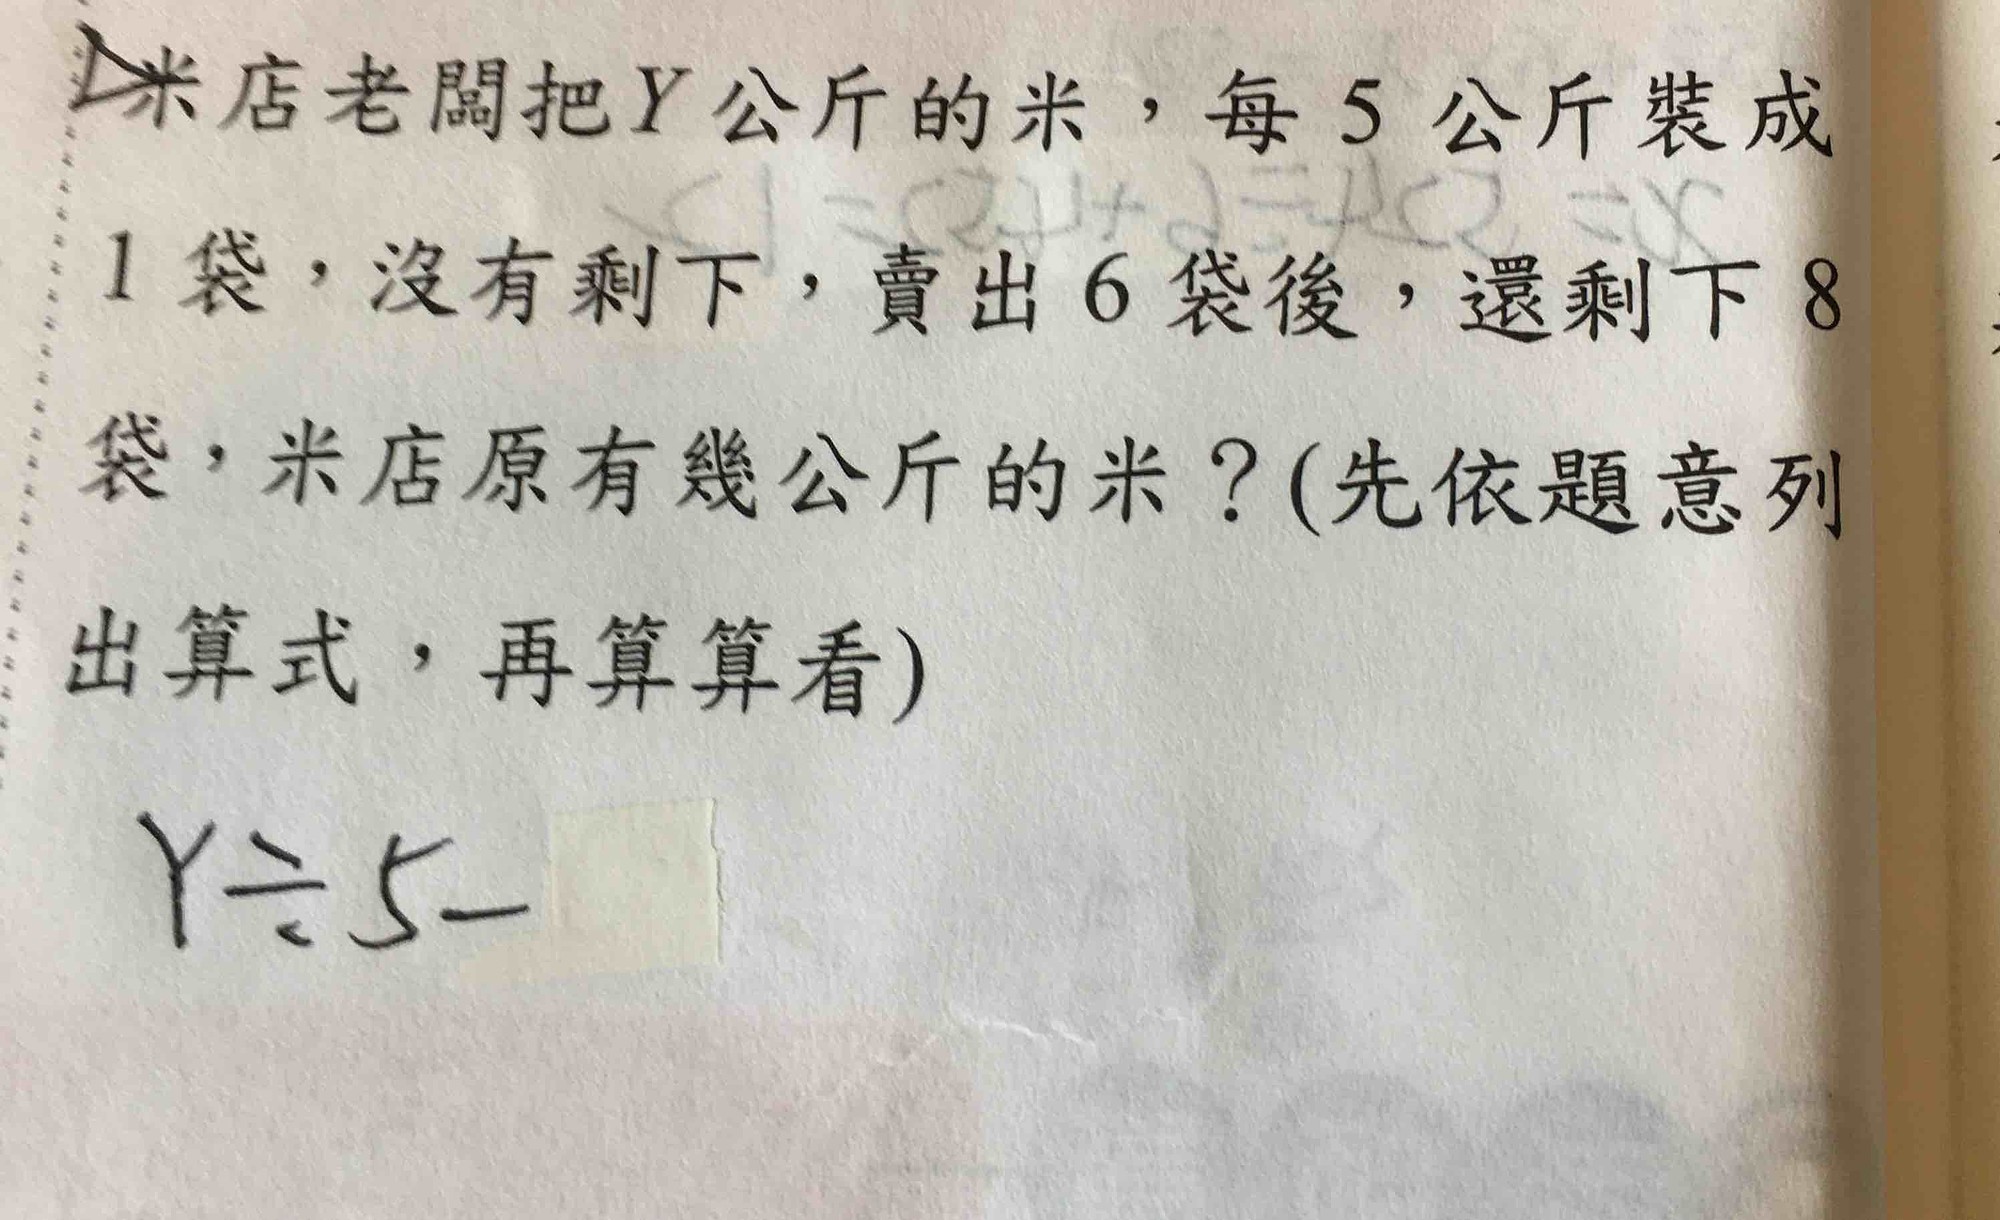 米店老闆把Y公斤的米，每5公斤裝成
1袋，沒有剩下，賣出6袋後，還剩下8
袋，米店原有幾公斤的米？(先依題意列
出算式，再算算看)
Y÷5－